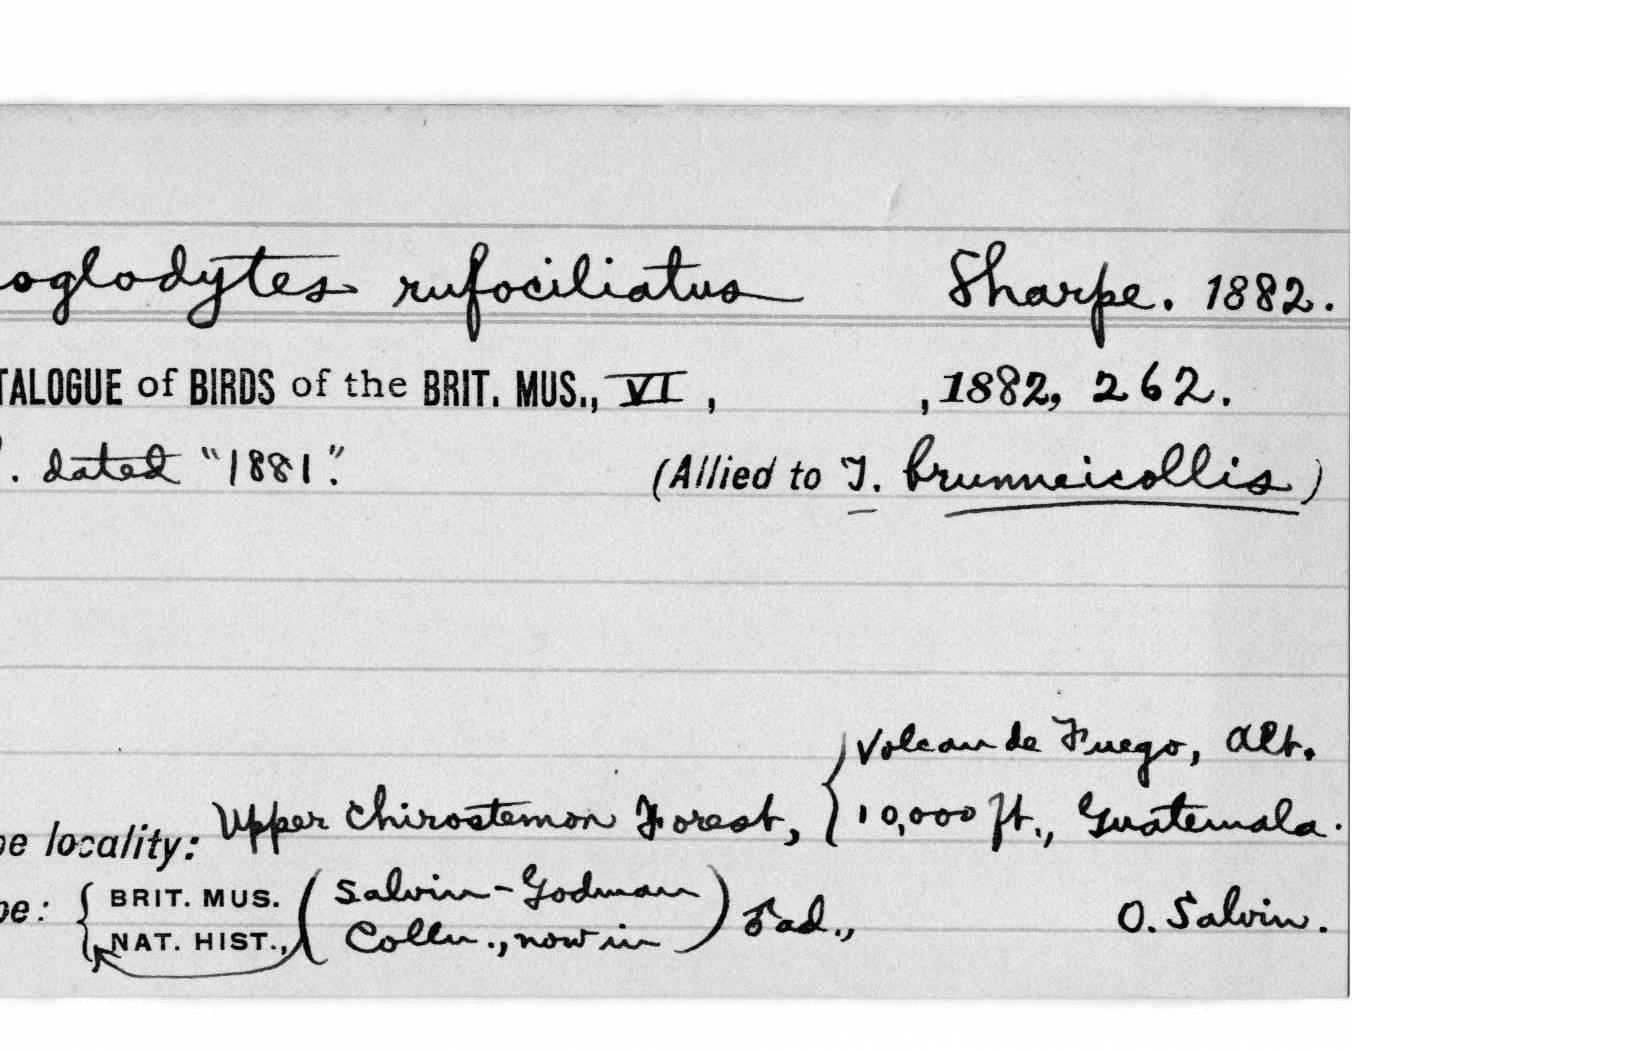 oglodytes rufociliatus Sharpe. 1882.
TALOGUE of BIRDS of the BRIT. MUS., VI, ,1882, 262.
. dated "1881".
(Allied to T. brunneicollis)
Volcan de Fuego, Alt.
pe locality: Upper Chirostemon Forest, { 10,000 ft., Guatemala.
pe: { BRIT. MUS. ( Salvin-Godman
NAT. HIST., Colln., now in ) ♂ ad., O. Salvin.